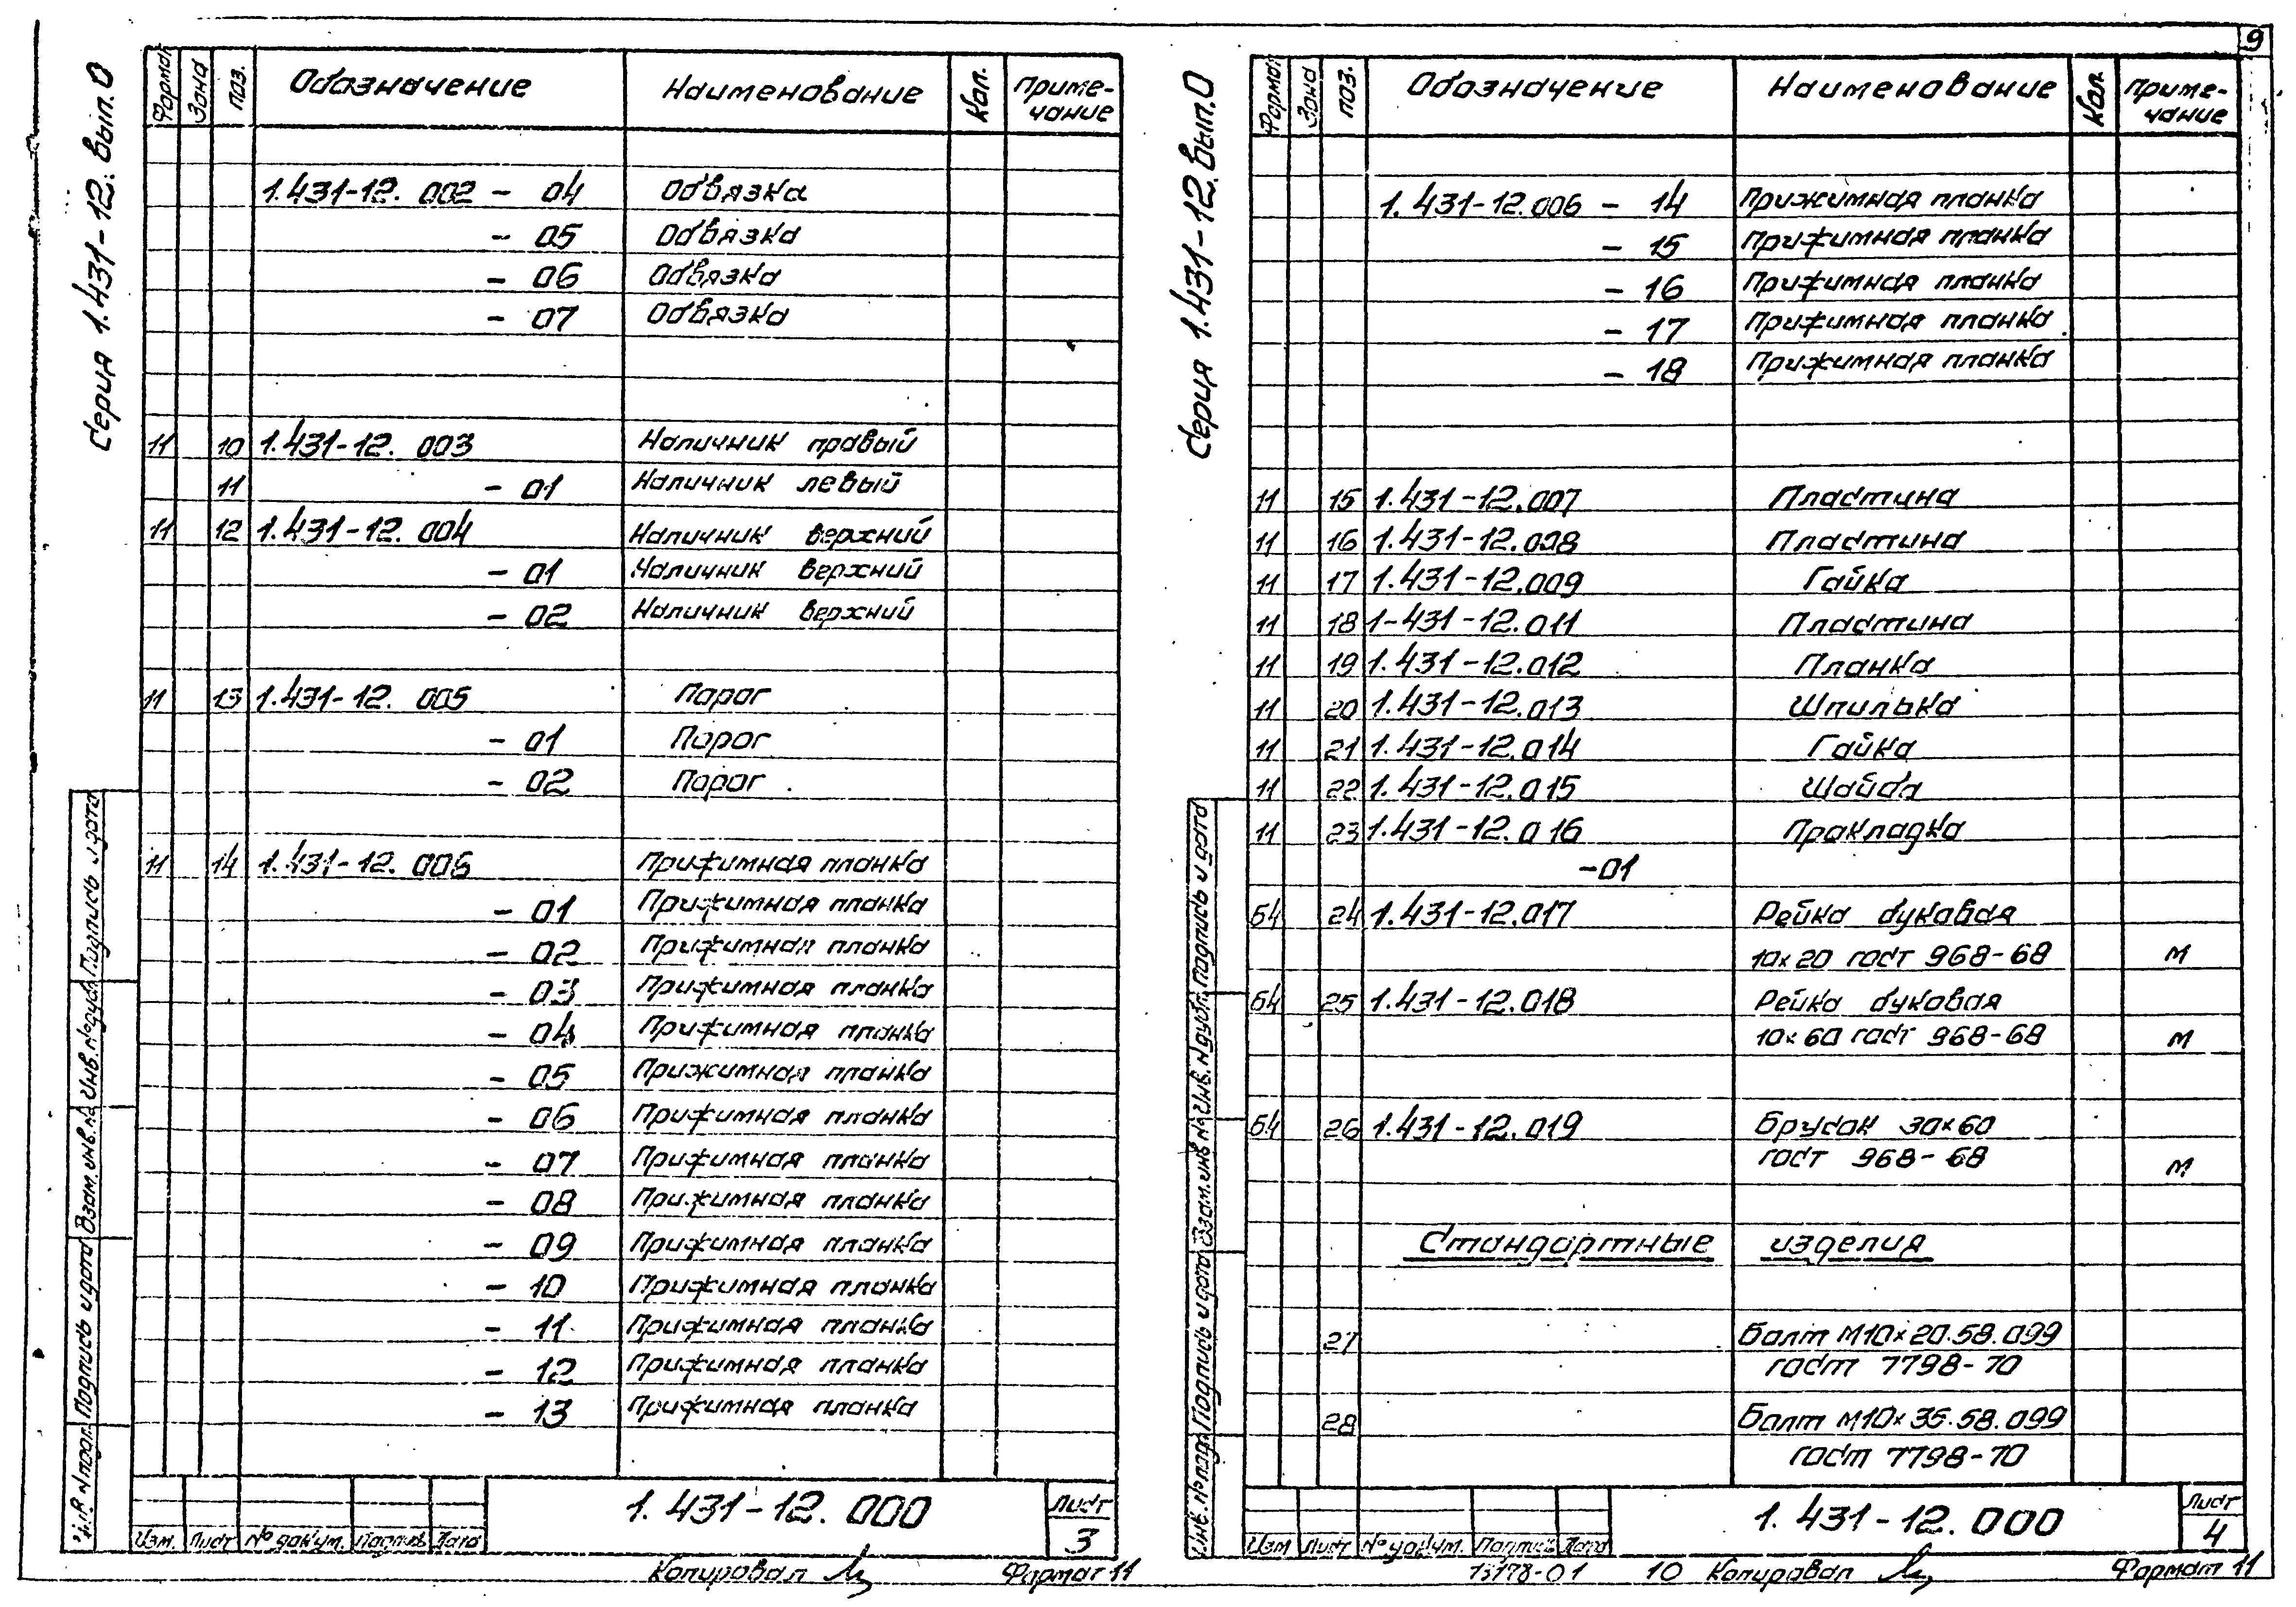 9
Серия 1.431-12. Вып. 0
Формат Зона Поз. Обозначение Наименование Кол. Примечание
1.431-12. 002 - 04 Обвязка
- 05 Обвязка
- 06 Обвязка
- 07 Обвязка
11 10 1.431-12. 003 Наличник правый
11 - 01 Наличник левый
11 12 1.431-12. 004 Наличник верхний
- 01 Наличник верхний
- 02 Наличник верхний
11 13 1.431-12. 005 Порог
- 01 Порог
- 02 Порог
11 14 1.431-12. 006 Прижимная планка
- 01 Прижимная планка
- 02 Прижимная планка
- 03 Прижимная планка
- 04 Прижимная планка
- 05 Прижимная планка
- 06 Прижимная планка
- 07 Прижимная планка
- 08 Прижимная планка
- 09 Прижимная планка
- 10 Прижимная планка
- 11 Прижимная планка
- 12 Прижимная планка
- 13 Прижимная планка
Инв. № подл. Подпись и дата Взам. инв. № Инв. № дубл. Подпись и дата
1.431-12. 000
Лист
3
Изм. Лист № докум. Подпись Дата
Копировал
Формат 11
Серия 1.431-12. Вып. 0
Формат Зона Поз. Обозначение Наименование Кол. Примечание
1.431-12.006 - 14 Прижимная планка
- 15 Прижимная планка
- 16 Прижимная планка
- 17 Прижимная планка
- 18 Прижимная планка
11 15 1.431-12.007 Пластина
11 16 1.431-12.008 Пластина
11 17 1.431-12.009 Гайка
11 18 1-431-12.011 Пластина
11 19 1.431-12.012 Планка
11 20 1.431-12.013 Шпилька
11 21 1.431-12.014 Гайка
11 22 1.431-12.015 Шайба
11 23 1.431-12.016 Прокладка
-01
Б4 24 1.431-12.017 Рейка буковая
10×20 ГОСТ 968-68 м
Б4 25 1.431-12.018 Рейка буковая
10×60 ГОСТ 968-68 м
Б4 26 1.431-12.019 Брусок 30×60
ГОСТ 968-68 м
Стандартные изделия
27 Болт М10×20.58.099
ГОСТ 7798-70
28 Болт М10×35.58.099
ГОСТ 7798-70
Инв. № подл. Подпись и дата Взам. инв. № Инв. № дубл. Подпись и дата
1.431-12.000
Лист
4
Изм Лист № докум. Подпись Дата
13178-01 10 Копировал
Формат 11